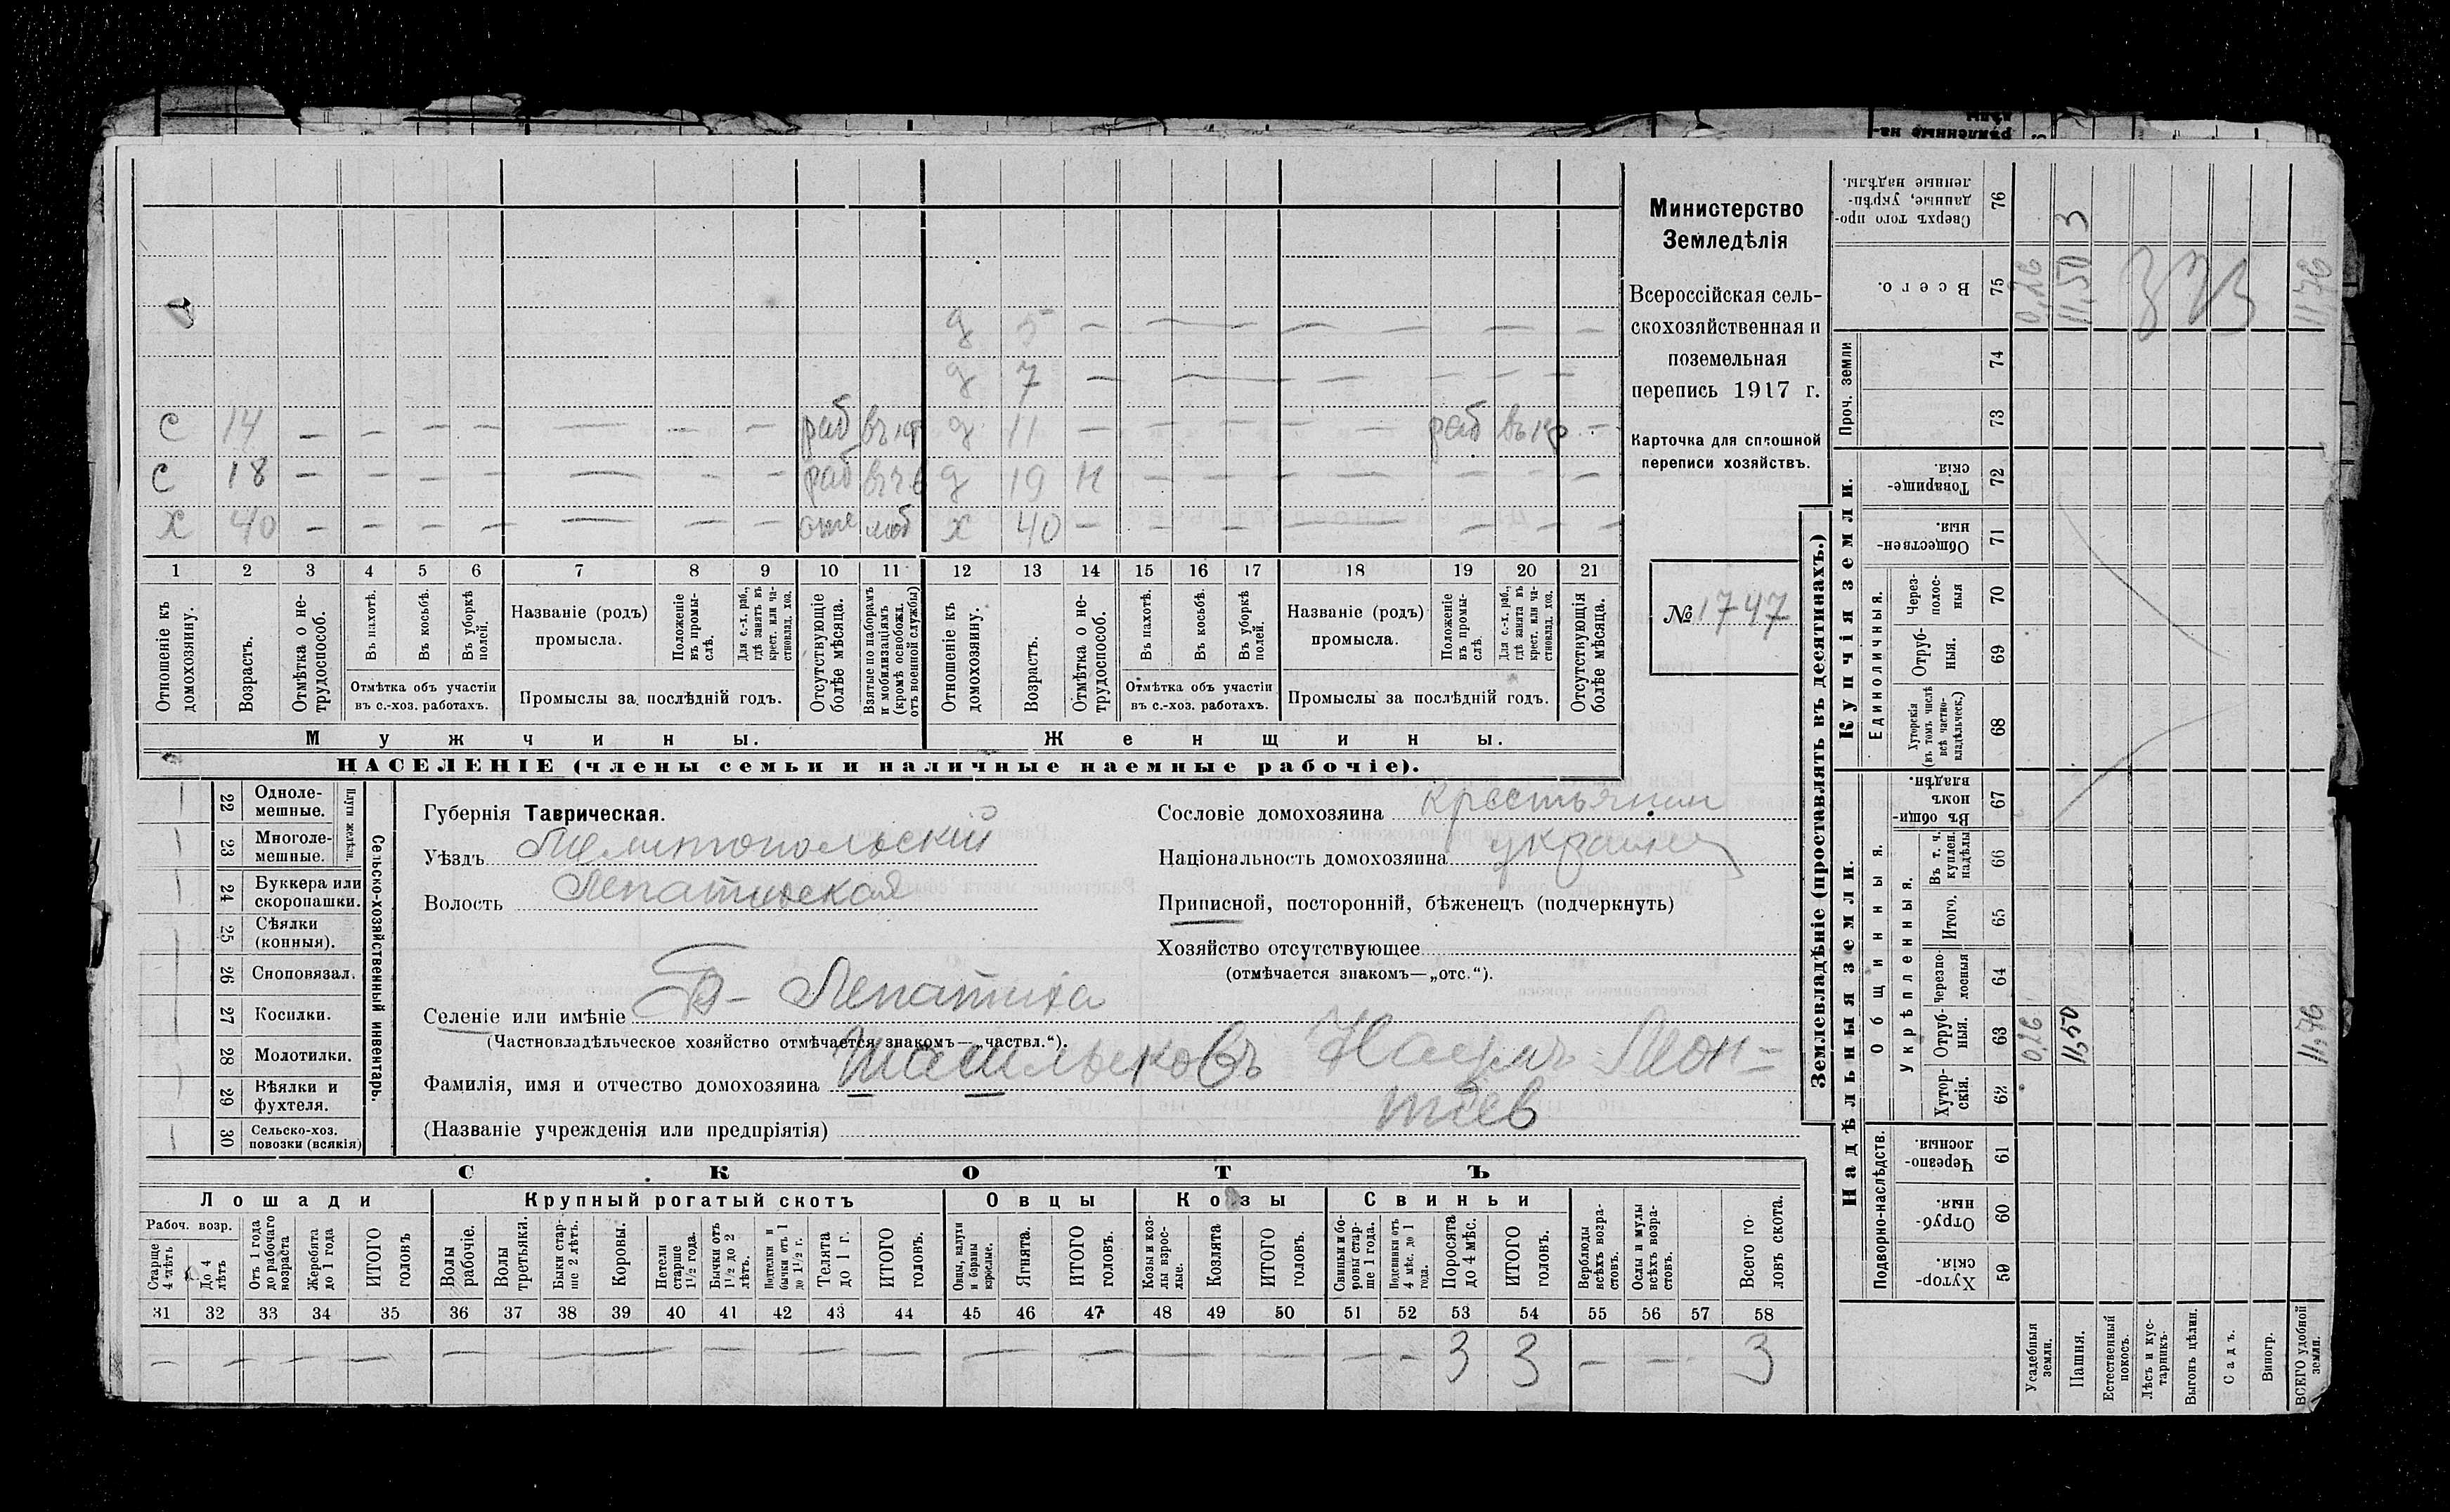 Министерство
Земледѣлія
Всероссійская сель-
скохозяйственная и
поземельная
перепись 1917 г.
Карточка для сплошной
переписи хозяйствъ.
№ 1747
д 5 — — — — — —
д 7 — — — — — —
с 14 — — — — — — — раб д 11 — — — — — — раб —
с 18 — — — — — — — раб д 19 н — — — — — — —
х 40 — — — — — — — х 40 — — — — — — — —
1 2 3 4 5 6 7 8 9 10 11 12 13 14 15 16 17 18 19 20 21
Отношеніе къ домохозяину.
Возрастъ.
Отмѣтка о не-трудоспособ.
Въ пахотѣ.
Въ косьбѣ.
Въ уборкѣ полей.
Отмѣтка объ участіи
въ с.-хоз. работахъ.
Названіе (родъ)
промысла.
Положеніе въ промы-слѣ.
Для с.-х. раб., гдѣ занятъ въ крест. или ча-стновлад. хоз.
Промыслы за послѣдній годъ.
Отсутствующіе болѣе мѣсяца.
Взятые по наборамъ и мобилизаціямъ (кромѣ освобожд. отъ военной службы)
Отношеніе къ домохозяину.
Возрастъ.
Отмѣтка о не-трудоспособ.
Въ пахотѣ.
Въ косьбѣ.
Въ уборкѣ полей.
Отмѣтка объ участіи
въ с.-хоз. работахъ.
Названіе (родъ)
промысла.
Положеніе въ промы-слѣ.
Для с.-х. раб., гдѣ занята въ крест. или ча-стновлад. хоз.
Промыслы за послѣдній годъ.
Отсутствующія болѣе мѣсяца.
Мужчины. Женщины.
НАСЕЛЕНІЕ (члены семьи и наличные наемные рабочіе).
22 Одноле-мешные.
23 Многоле-мешные.
Плуги желѣзн.
24 Буккера или скоропашки.
25 Сѣялки (конныя).
26 Сноповязал.
27 Косилки.
28 Молотилки.
29 Вѣялки и фухтеля.
30 Сельско-хоз. повозки (всякія)
Сельско-хозяйственный инвентарь.
Губернія Таврическая.
Уѣздъ Мелитопольскій
Волость Лепатихская
Селеніе или имѣніе Б- Лепатиха
(Частновладѣльческое хозяйство отмѣчается знакомъ—„частвл.“).
Фамилія, имя и отчество домохозяина
(Названіе учрежденія или предпріятія)
Сословіе домохозяина крестьянин
Національность домохозяина украинец
Приписной, посторонній, бѣженецъ (подчеркнуть)
Хозяйство отсутствующее
(отмѣчается знакомъ—„отс.“).
СКОТЪ
Лошади Крупный рогатый скотъ Овцы Козы Свиньи
Рабоч. возр.
Старше 4 лѣтъ
До 4 лѣтъ
Отъ 1 года до рабочаго возраста
Жеребята до 1 года
ИТОГО головъ
Волы рабочіе.
Волы третьяки.
Быки стар-ше 2 лѣтъ.
Коровы.
Нетели старше 1½ года.
Бычки отъ 1½ до 2 лѣтъ.
Подтелки и бычки отъ 1 до 1½ г.
Телята до 1 г.
ИТОГО головъ.
Овцы, валухи и бараны взрослые.
Ягнята.
ИТОГО головъ.
Козы и коз-лы взрос-лые.
Козлята
ИТОГО головъ.
Свиньи и бо-ровы стар-ше 1 года.
Подсвинки отъ 4 мѣс. до 1 года.
Поросята до 4 мѣс.
ИТОГО головъ.
Верблюды всѣхъ возра-стовъ.
Ослы и мулы всѣхъ возра-стовъ.
Всего го-ловъ скота.
31 32 33 34 35 36 37 38 39 40 41 42 43 44 45 46 47 48 49 50 51 52 53 54 55 56 57 58
— — — — — — — — — — — — — — — — — — — 3 3 — — 3
Землевладѣніе (проставлять въ десятинахъ.)
Надѣльныя земли. Купчія земли. Проч. земли
Подворно-наслѣдств.
Общинныя.
Укрѣпленныя.
Единоличныя.
Хутор-скія. 59
Отруб-ныя. 60
Черезпо-лосныя 61
Хутор-скія. 62
Отруб-ныя. 63
Черезпо-лосныя 64
Итого. 65
Въ т. ч. куплен. надѣлы 66
Въ общи-номъ владѣн. 67
Хуторскія (въ томъ числѣ всѣ частно-владѣльческ.) 68
Отруб-ныя. 69
Через-полос-ныя 70
Обществен-ныя. 71
Товарище-скія. 72
73
74
Всего. 75
Сверхъ того про-данные, укрѣп-ленные надѣлы. 76
Усадебныя земли. 0,26 0,26
Пашня. 11,50 11,50 3
Естественный покосъ.
Лѣсъ и кус-тарникъ.
Выгонъ цѣлин.
Садъ.
Виногр.
ВСЕГО удобной земли. 11,76 11,76